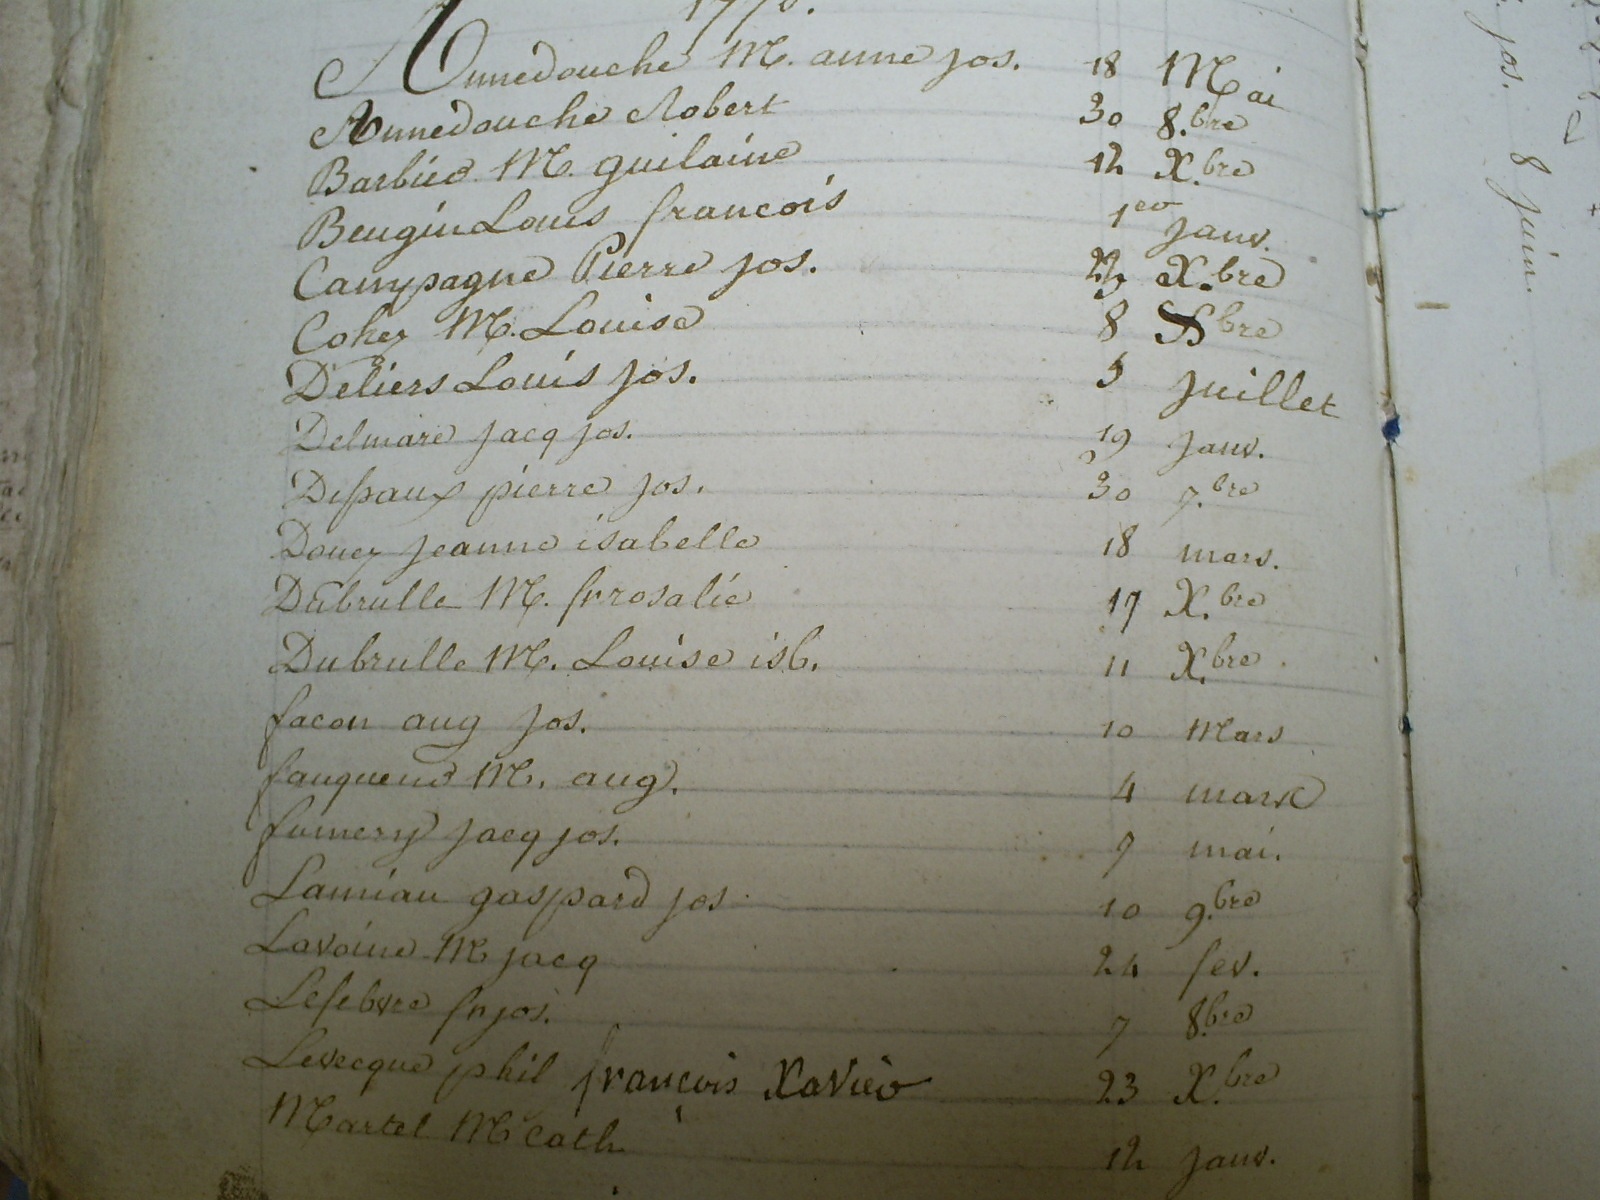 Annedouche M. anne jos. 18 Mai
Annedouche Robert 30 8.bre
Barbier M. guilaine 12 X.bre
Beugin Louis francois 1er Janv.
Campagne Pierre jos. X.bre
Cohez M. Louise 8 bre
Deliers Louis jos. 5 Juillet
Delmare jacq jos. 19 Janv.
Dissaux pierre jos. 30 7.bre
Douez jeanne isabelle 18 mars.
Dubrulle M. fr rosalie 17 X.bre
Dubrulle M. Louise isb. 11 X.bre
facon aug jos. 10 Mars
fauquene M. aug. 4 mars
fumery jacq jos. 7 mai.
Lamiau gaspard jos 10 9.bre
Lavoine M jacq 24 fev.
Lefebvre fr jos. 7 8.bre
Levecque phil françois Xavier 23 X.bre
Martel M Cath 12 Janv.
jos. 8 Juin.